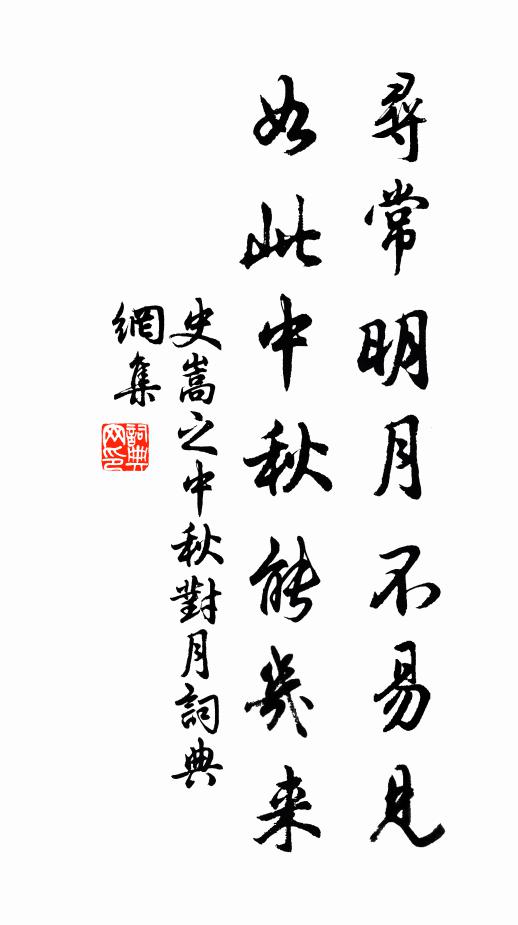 尋常明月不易見
如此中秋能幾来
史嵩之中秋對月詞典
網集
詞典
网印